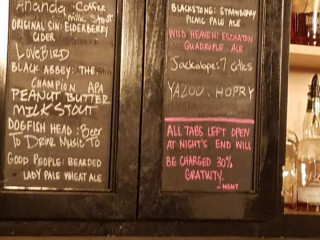 Ananda: Coffee
Milk Stout
ORIGINAL SIN: ELDERBERRY
CIDER
LOVEBIRD
BLACK ABBEY: THE
CHAMPION APA
PEANUT BUTTER
MILK STOUT
DOGFISH HEAD: Beer
To Drink Music To
GOOD PEOPLE: BEARDED
LADY PALE WHEAT ALE
BLACKSTONE: STRAWBERRY
PICNIC PALE ALE
WILD HEAVEN: ESCHATON
QUADRUPLE ALE
Jackalope: 7 Cities
YAZOO: HOPRY
ALL TABS LEFT OPEN
AT NIGHT'S END WILL
BE CHARGED 30%
GRATUITY.
-MGMT